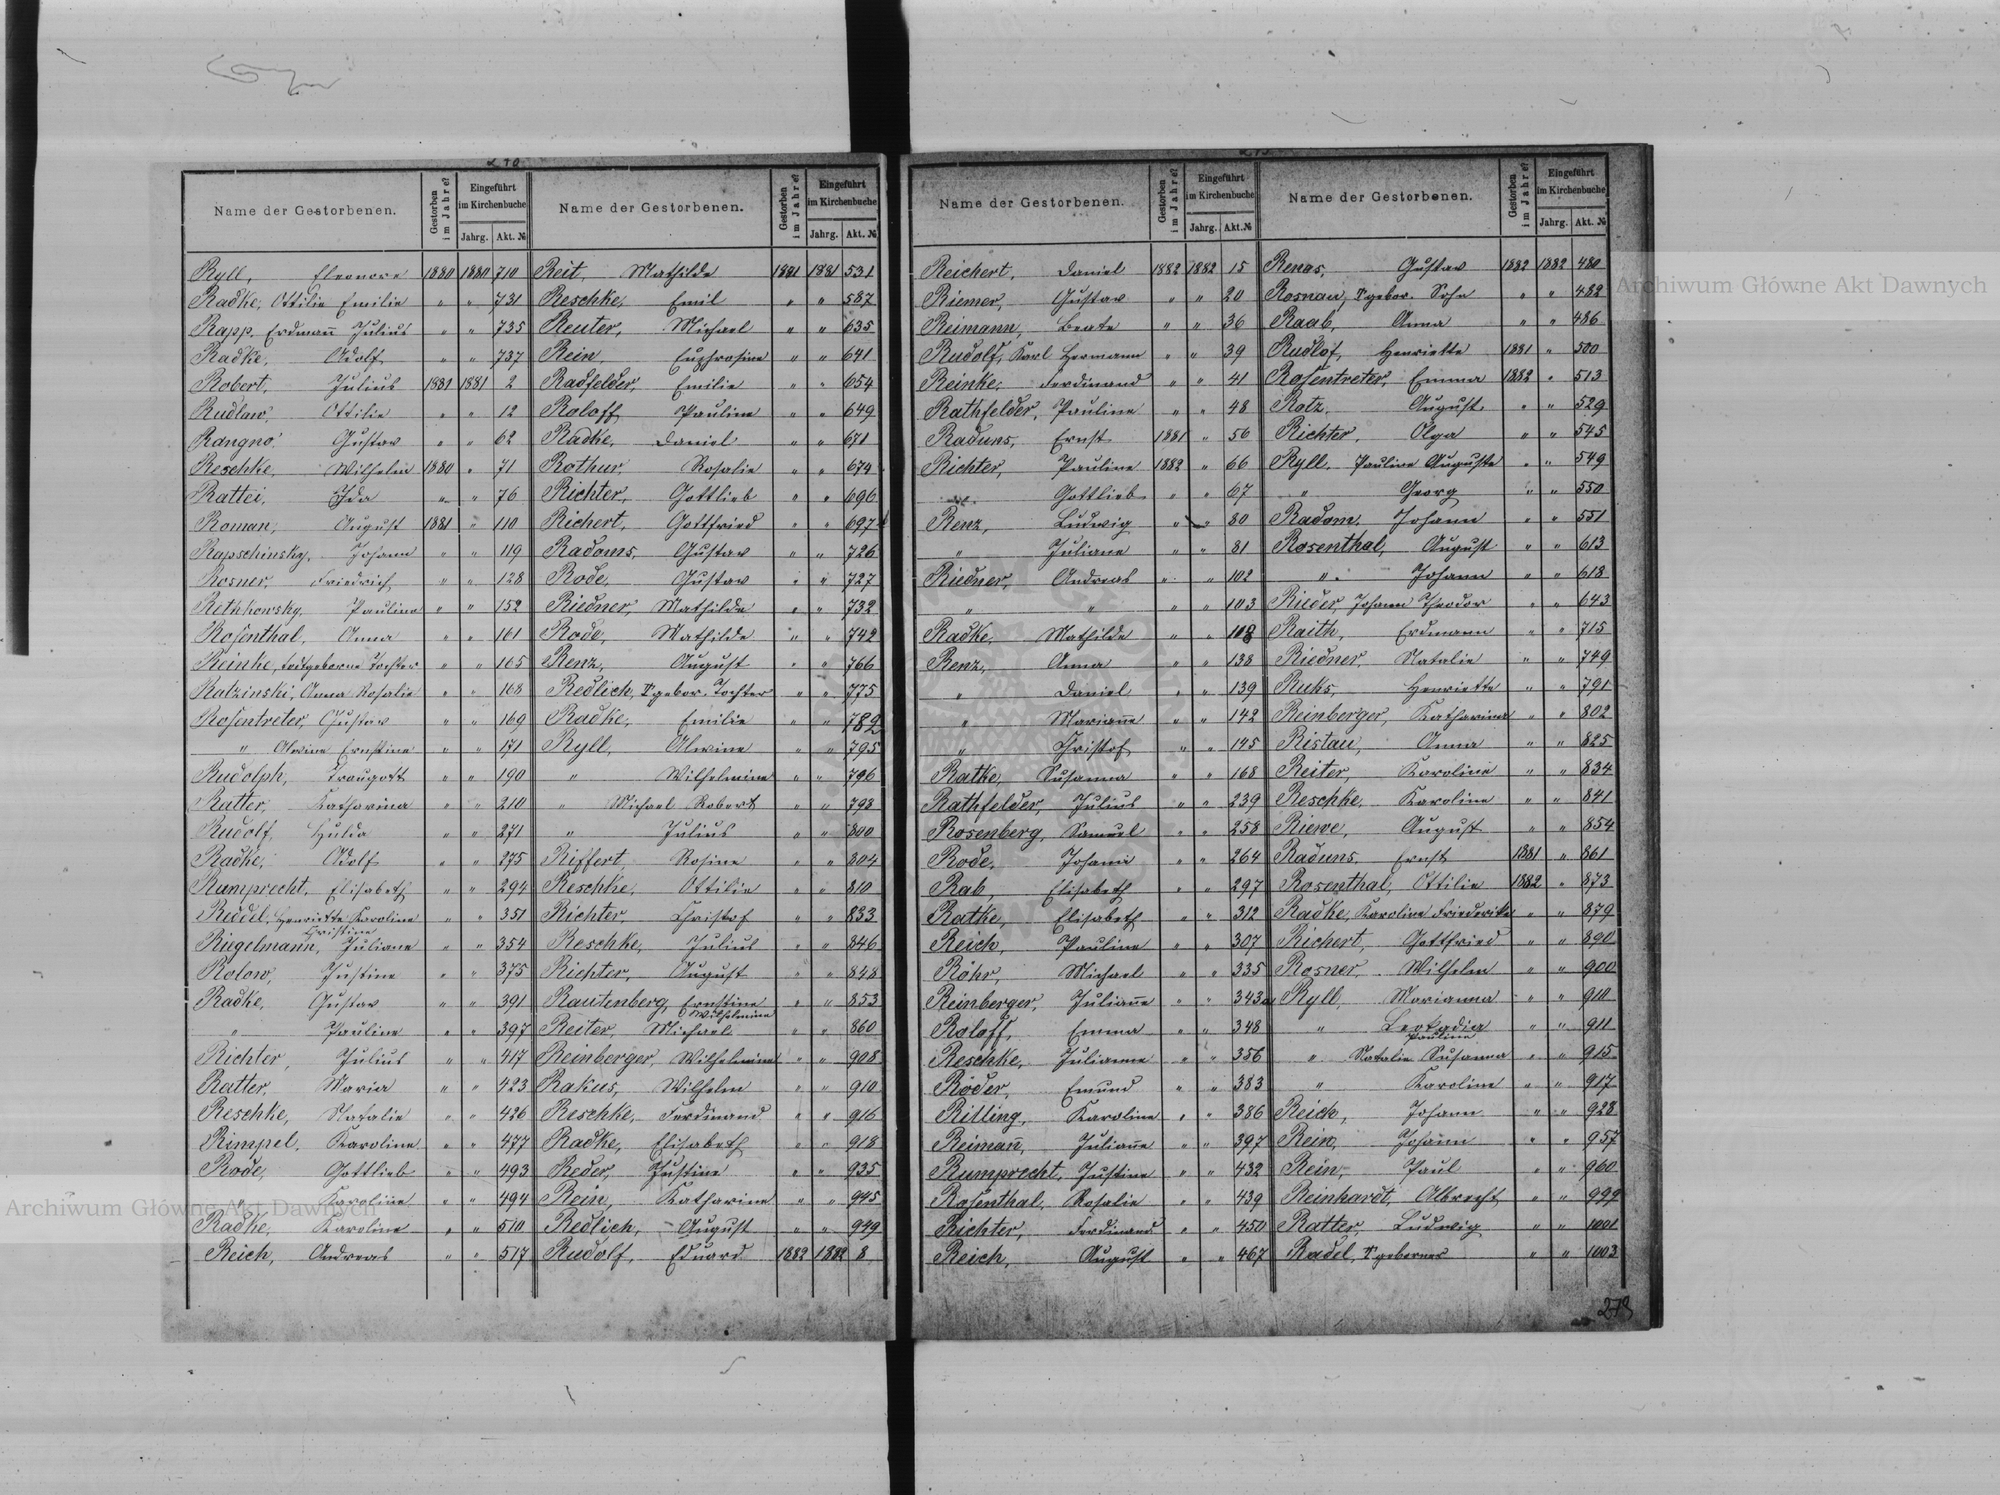 Name der Gestorbenen. Gestorben im Jahre? Eingeführt im Kirchenbuche Jahrg. Akt. № Name der Gestorbenen. Gestorben im Jahre? Eingeführt im Kirchenbuche Jahrg. Akt. №
Ryll, Eleonore 1880 1880 710 Reit, Mathilde 1881 1881 531
Radke, Ottilie Emilie " " 731 Reschke, Emil " " 587
Rapp, Erdmañ Julius " " 735 Reuter, Michael " " 635
Radke, Adolf " " 737 Rein, Euphrosine " " 641
Robert, Julius 1881 1881 2 Radfelder, Emilie " " 654
Rudlaw, Ottilie " " 12 Roloff, Pauline " " 649
Rangno, Gustav " " 62 Radke, Daniel " " 671
Reschke, Wilhelm 1880 " 71 Rothur, Rosalie " " 674
Rattei, Ida " " 76 Richter, Gottlieb " " 696
Roman, August 1881 " 110 Richert, Gottfried " " 697
Rapschinsky, Johann " " 119 Radoms, Gustav " " 726
Rosner, Friedrich " " 128 Rode, Gustav " " 727
Rethkowsky, Pauline " " 152 Riedner, Mathilde " " 732
Rosenthal, Anna " " 161 Rode, Mathilde " " 742
Reinke, todtgeborne Tochter " " 165 Renz, August " " 766
Ratzinski, Anna Rosalie " " 168 Redlich, gebor. Tochter " " 775
Rosentreter, Gustav " " 169 Radke, Emilie " " 789
" Alwine Ernstine " " 171 Ryll, Alwine " " 795
Rudolph, Traugott " " 190 " Wilhelmine " " 796
Ratter, Katharina " " 210 " Michael Robert " " 798
Rudolf, Hulda " " 271 " Julius " " 800
Radke, Adolf " " 275 Riffert, Rosine " " 804
Rumprecht, Elisabeth " " 294 Reschke, Ottilie " " 810
Riedel, Henriette Karoline Christine " " 351 Richter Christof " " 833
Riegelmann, Juliane " " 354 Reschke, Julius " " 846
Rolow, Justine " " 375 Richter, August " " 848
Radke, Gustav " " 391 Rautenberg, Ernstine Wilhelmine " " 853
" Pauline " " 397 Reiter, Michael " " 860
Richter, Julius " " 417 Reinberger, Wilhelmine " " 908
Ratter, Maria " " 423 Rakus, Wilhelm " " 910
Reschke, Natalie " " 426 Reschke, Ferdinand " " 916
Rimpel, Karoline " " 477 Radke, Elisabeth " " 918
Rode, Gottlieb " " 493 Reder, Justine " " 935
" Karoline " " 494 Rein, Katharine " " 945
Radke, Karoline " " 510 Redlich, August " " 999
Reich, Andreas " " 517 Rudolf, Eduard 1882 1882 8
Name der Gestorbenen. Gestorben im Jahre? Eingeführt im Kirchenbuche Jahrg. Akt. № Name der Gestorbenen. Gestorben im Jahre? Eingeführt im Kirchenbuche Jahrg. Akt. №
Reichert, Daniel 1882 1882 15 Renas, Gustav 1882 1882 480
Riemer, Gustav " " 20 Rosnau, gebor. Sohn " " 482
Reimann, Beate " " 36 Raab, Anna " " 486
Rudolf, Karl Hermann " " 39 Rudlof, Henriette 1881 " 500
Reinke, Ferdinand " " 41 Rosentreter, Emma 1882 " 513
Rathfelder, Pauline " " 48 Ratz, August " " 529
Raduns, Ernst 1881 " 56 Richter, Olga " " 545
Richter, Pauline 1882 " 66 Ryll, Pauline Auguste " " 549
" Gottlieb " " 67 " Georg " " 550
Renz, Ludwig " " 80 Radom, Johann " " 551
" Juliane " " 81 Rosenthal, August " " 613
Riedner, Andreas " " 102 " Johann " " 618
" " " " 103 Rieder, Johann Theodor " " 643
Radke, Mathilde " " 108 Raith, Erdmann " " 715
Renz, Anna " " 138 Riedner, Natalie " " 749
" Daniel " " 139 Ruks, Henriette " " 791
" Mariañe " " 142 Reinberger, Katharina " " 802
" Christof " " 145 Ristau, Anna " " 825
Rathe, Susanna " " 168 Reiter, Karoline " " 834
Rathfelder, Julius " " 239 Reschke, Karoline " " 841
Rosenberg, Samuel " " 258 Riewe, August " " 854
Rode, Johann " " 264 Raduns, Ernst 1881 " 861
Rab, Elisabeth " " 297 Rosenthal, Ottilie 1882 " 873
Rathe, Elisabeth " " 312 Radke, Karoline Friederike " " 879
Reich, Pauline " " 307 Richert, Gottfried " " 890
Röhr, Michael " " 335 Rosner, Wilhelm " " 900
Reinberger, Juliañe " " 343a Ryll, Marianna " " 910
Roloff, Emma " " 348 " Leokadia " " 911
Reschke, Julianne " " 356 " Natalie Pauline Susanna " " 915
Röder, Emund " " 383 " Karoline " " 917
Rilling, Karoline " " 386 Reich, Johann " " 928
Reimañ, Juliañe " " 397 Rein, Johann " " 957
Rumprecht, Justine " " 432 Rein, Paul " " 960
Rosenthal, Rosalie " " 439 Reinhardt, Albrecht " " 999
Richter, Ferdinand " " 450 Ratter, Ludwig " " 1001
Reich, August " " 467 Radel, gebornes " " 1003
279
Archiwum Główne Akt Dawnych
Archiwum Główne Akt Dawnych